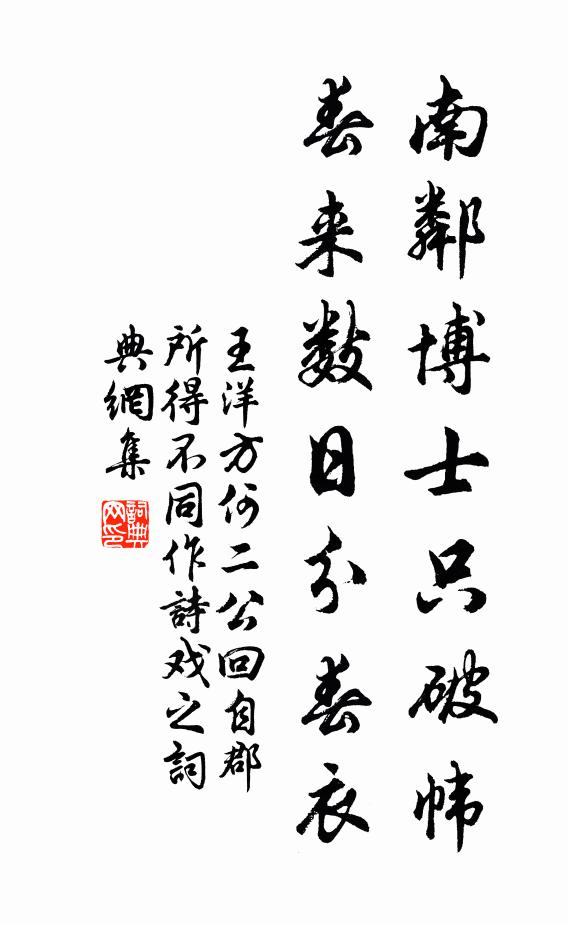 南鄰博士只破帏
春来数日分春衣
王洋方何二公回自郡
所得不同作詩戏之詞
典網集
詞典网印